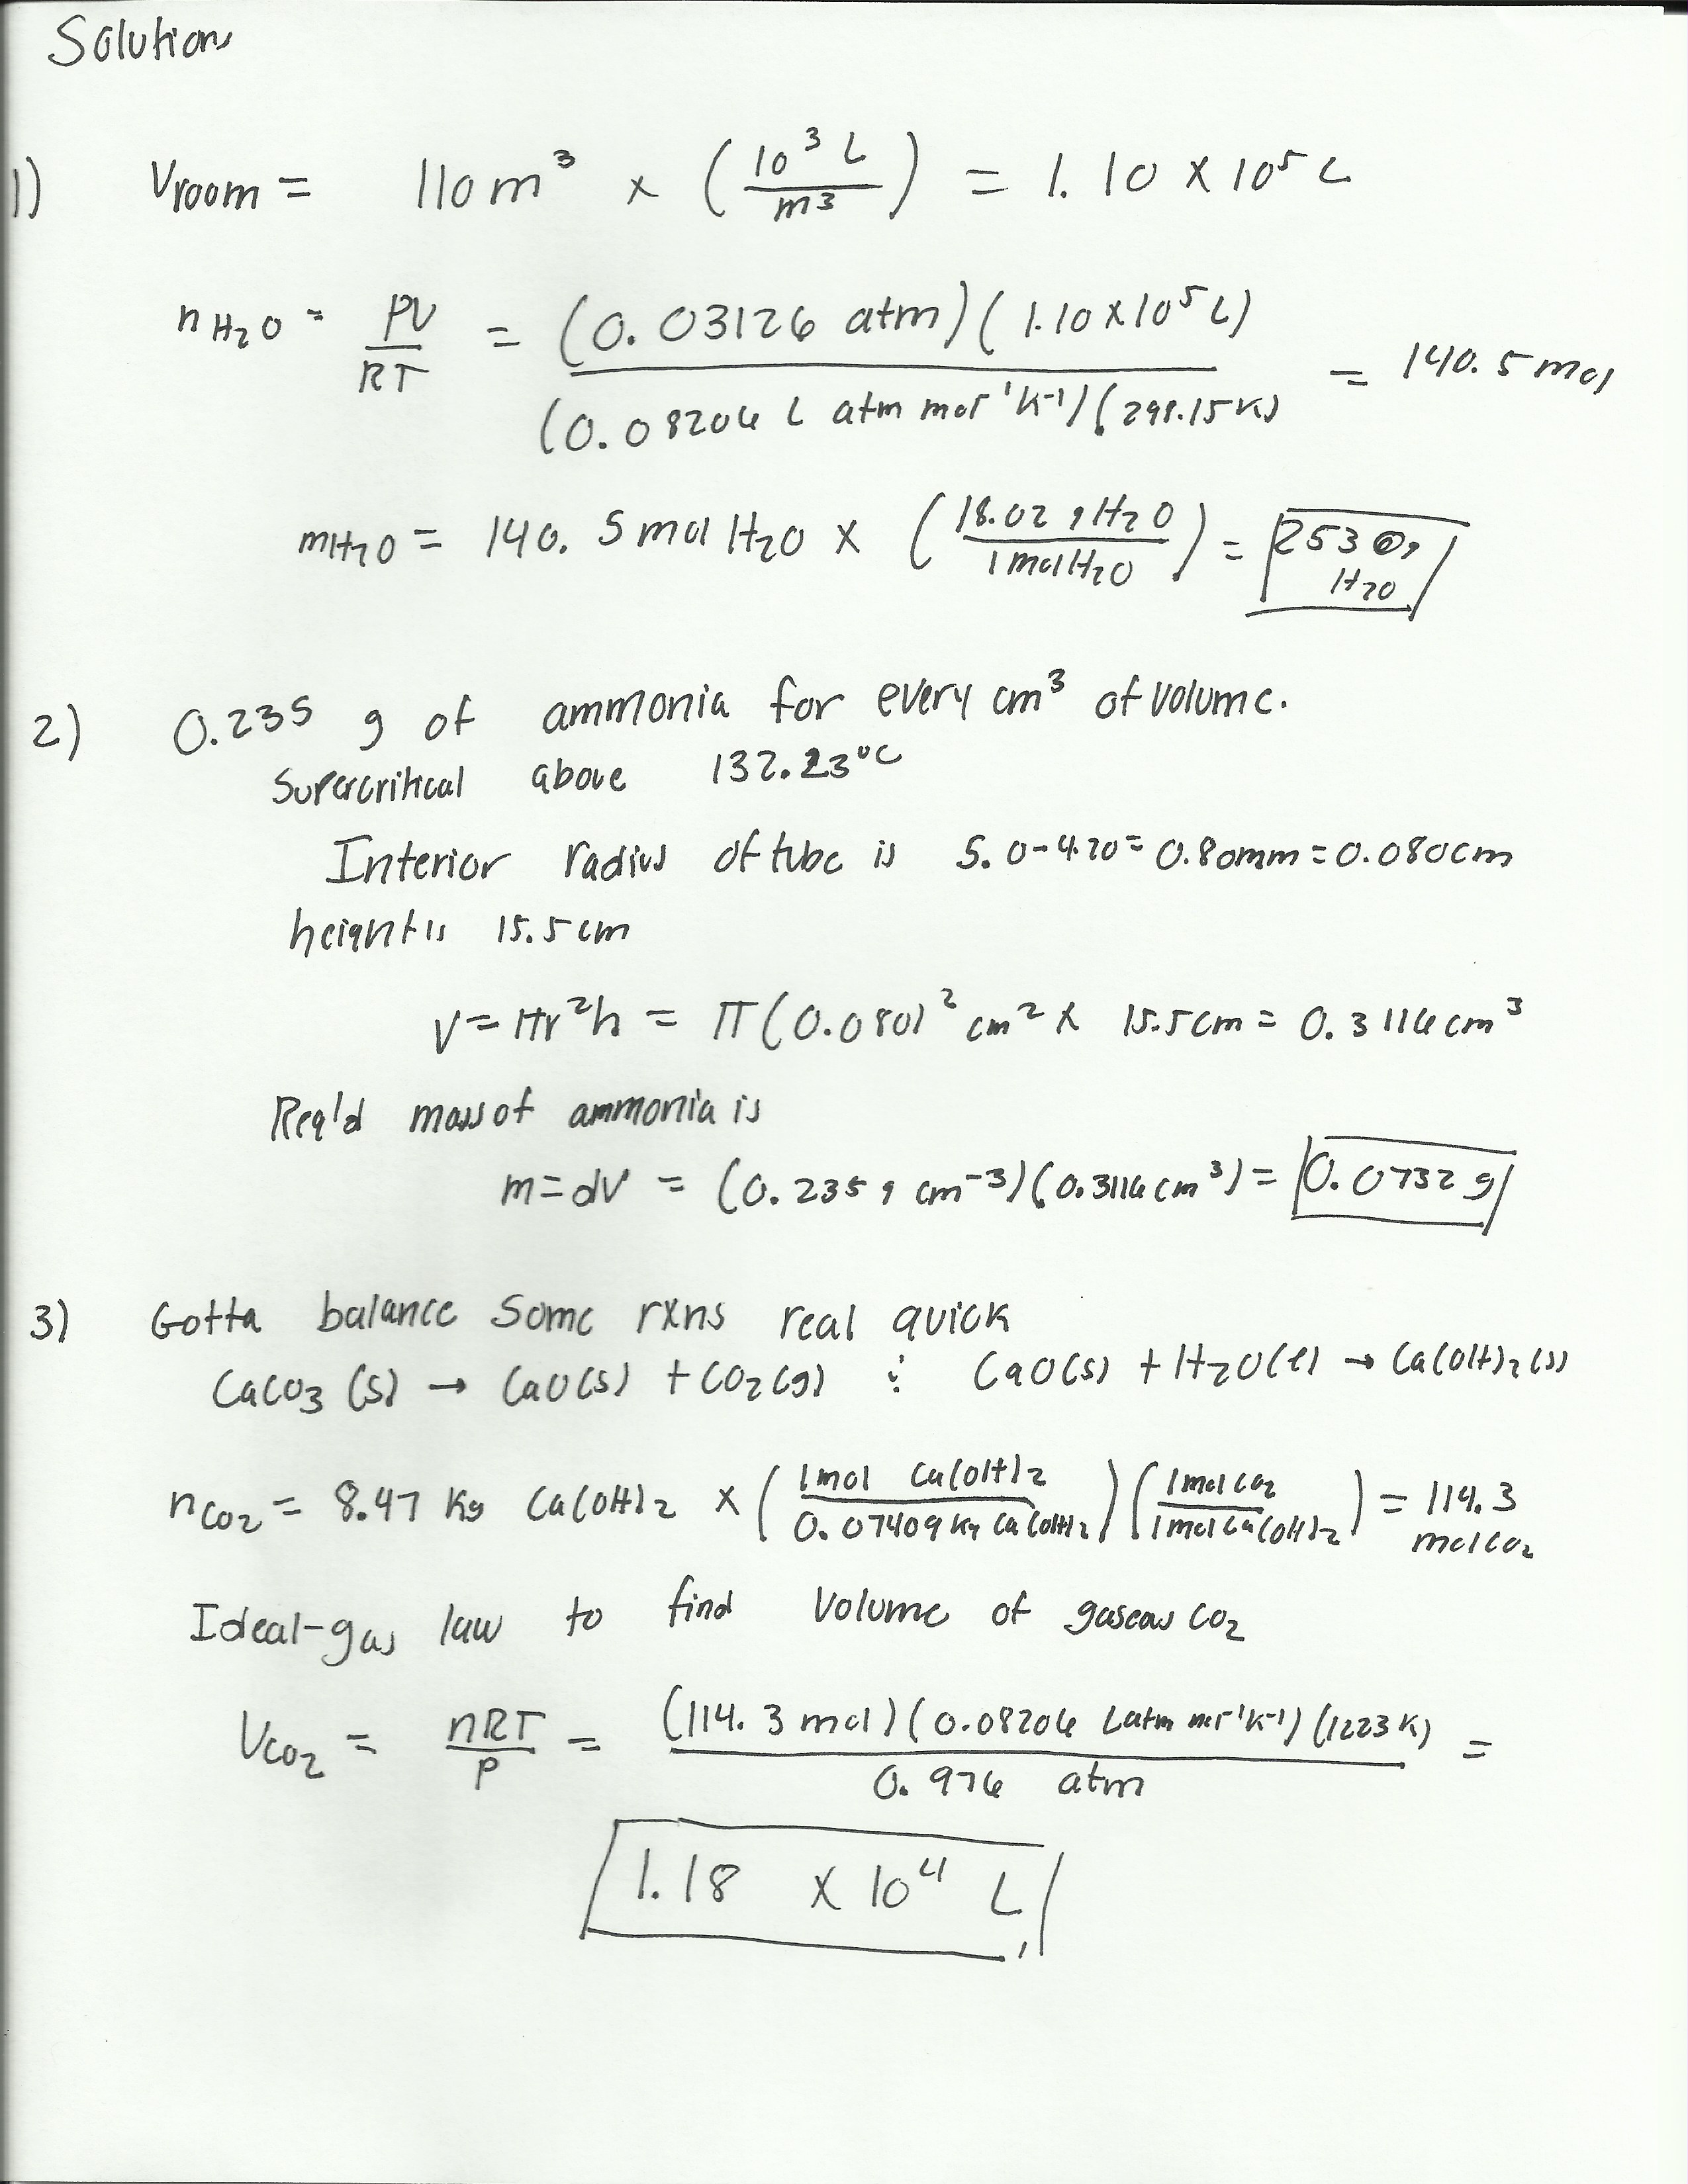 Solutions
1) Vroom = 110 m³ × (10³ L / m³) = 1.10 × 10⁵ L
nH₂O = PV / RT = (0.03126 atm)(1.10 × 10⁵ L) / (0.08206 L atm mol⁻¹ K⁻¹)(298.15 K) = 140.5 mol
mH₂O = 140.5 mol H₂O × (18.02 g H₂O / 1 mol H₂O) = 2530 g H₂O
2) 0.235 g of ammonia for every cm³ of volume.
Supercritical above 132.23°C
Interior radius of tube is 5.0-4.20 = 0.80mm = 0.080cm
height is 15.5 cm
V = πr²h = π(0.080)² cm² × 15.5 cm = 0.3116 cm³
Req'd mass of ammonia is
m = dV = (0.235 g cm⁻³)(0.3116 cm³) = 0.0732 g
3) Gotta balance some rxns real quick
CaCO₃(s) → CaO(s) + CO₂(g) ; CaO(s) + H₂O(l) → Ca(OH)₂(s)
nCO₂ = 8.47 kg Ca(OH)₂ × (1 mol Ca(OH)₂ / 0.07409 kg Ca(OH)₂)(1 mol CO₂ / 1 mol Ca(OH)₂) = 114.3 mol CO₂
Ideal-gas law to find volume of gaseous CO₂
VCO₂ = nRT / P = (114.3 mol)(0.08206 L atm mol⁻¹ K⁻¹)(1223 K) / 0.976 atm =
1.18 × 10⁴ L